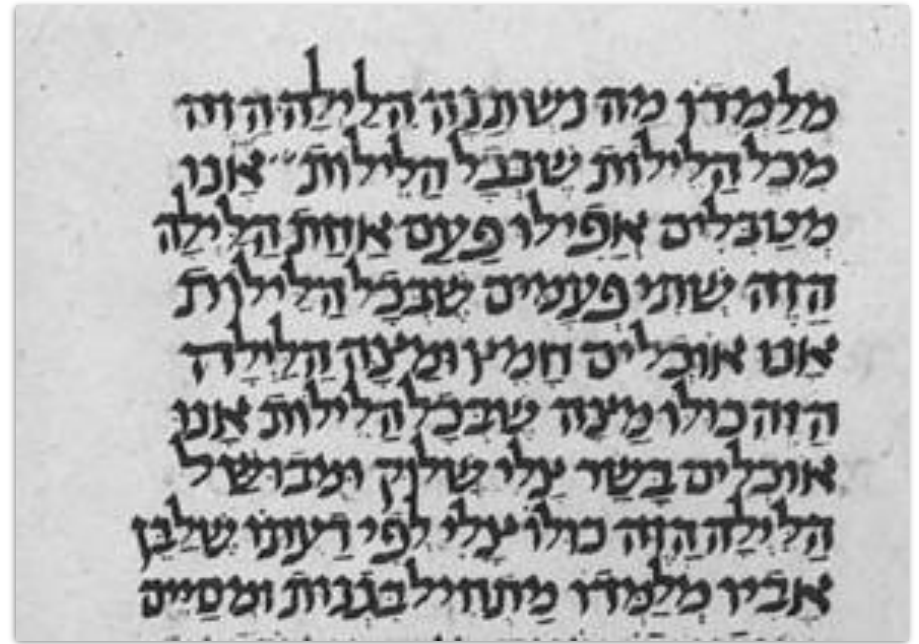 מלמדו מה נשתנה הלילה הזה
מכל הלילות שבכל הלילות אנו
מטבלים אפילו פעם אחת הלילה
הזה שתי פעמים שבכל הלילות
אנו אוכלים חמץ ומצה הלילה
הזה כולו מצה שבכל הלילות אנו
אוכלים בשר צלי שלוק ומבושל
הלילה הזה כולו צלי לפי דעתו שלבן
אביו מלמדו מתחיל בגנות ומסיים